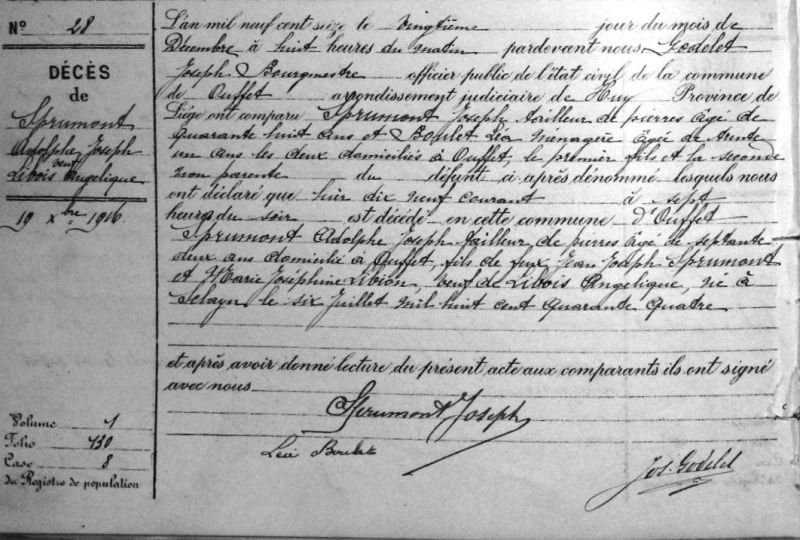 N° 28
DÉCÈS
de
Sprumont
Adolphe Joseph
veuf
Libois Angelique
19 Xbre 1916
Volume 1
Folio 430
Case 8
du Registre de population
L'an mil neuf cent seize le vingtième jour du mois de
Décembre à huit heures du matin pardevant nous Godelet
Joseph Bourgmestre officier public de l'état civil de la commune
de Ouffet arrondissement judiciaire de Huy Province de
Liége ont comparu Sprumont Joseph tailleur de pierres âgé de
quarante huit ans et Boulet Léa ménagère âgée de trente
un ans les deux domiciliés à Ouffet, le premier fils et la seconde
non parente du défunt ci après dénommé lesquels nous
ont déclaré que hier dix neuf courant à sept
heures du soir est décédé en cette commune d'Ouffet
Sprumont Adolphe Joseph tailleur de pierres âgé de septante
deux ans domicilié à Ouffet, fils de feux Jean Joseph Sprumont
et Marie Joséphine Libion, veuf de Libois Angelique, né à
le six Juillet mil huit cent quarante quatre
et après avoir donné lecture du présent acte aux comparants ils ont signé
avec nous
Sprumont Joseph
Léa Boulet
Jos. Godelet